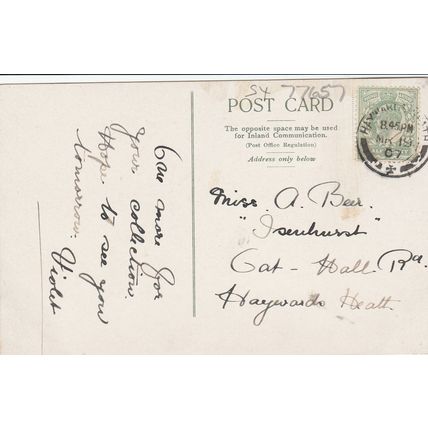 SX 77657
POST CARD
The opposite space may be used
for Inland Communication.
(Post Office Regulation)
Address only below
8.45PM
19
07
One more for
your collection.
Hope to see you
tomorrow. Violet
Miss A. Beer.
"Isenhurst"
Gat- Hall. Rd.
Haywards Heath.